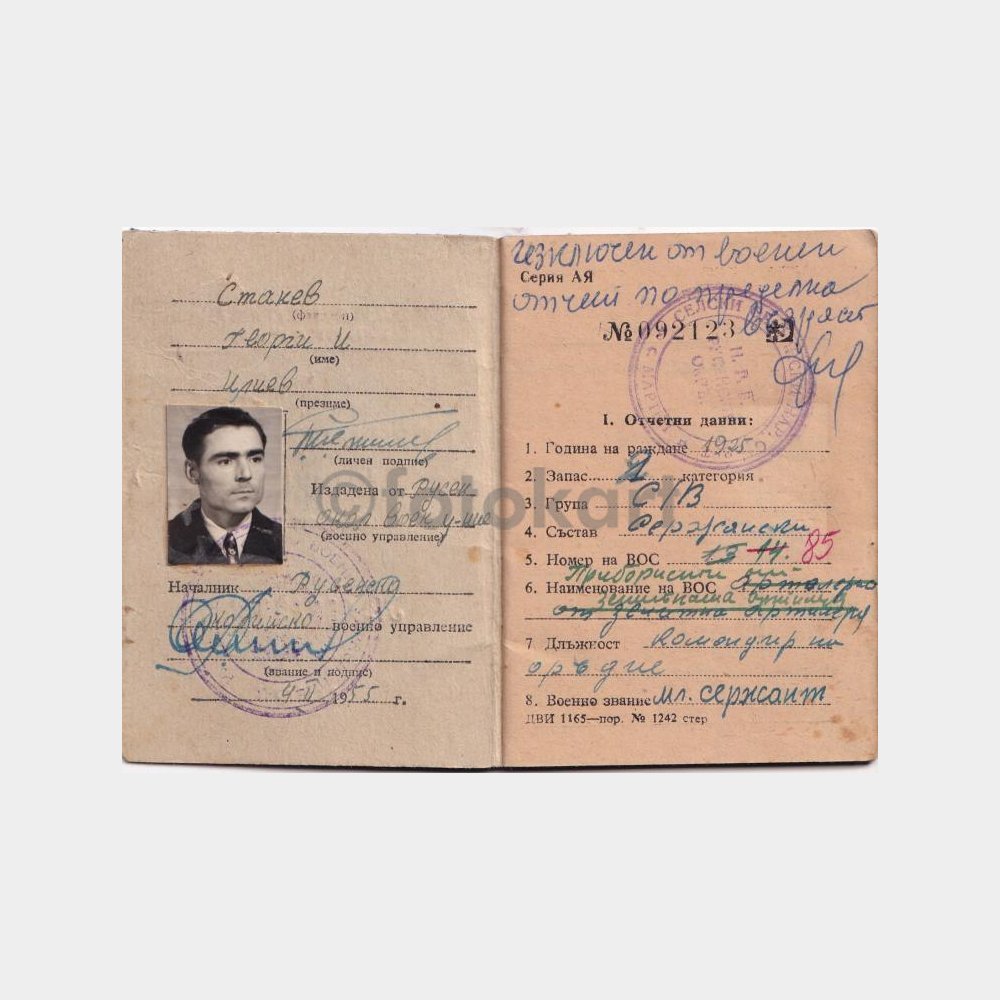 Станев
(фамилия)
Георги И
(име)
Илиев
(презиме)
(личен подпис)
Издадена от Русен.
окол воен у-ние
(военно управление)
Началник
военно управление
(звание и подпис)
4-II 1955 г.
изключен от военен
Серия АЯ
отчет по пределна
възраст
№ 092123
I. Отчетни данни:
1. Година на раждане 1925
2. Запас категория
3. Група С/В
4. Състав Сержантски
5. Номер на ВОС 13 14. 85
6. Наименование на ВОС
от зенитна артилеря
7 Длъжност командир на
оръдие
8. Военно звание мл. сержант
ДВИ 1165—пор. № 1242 стер
©fotokar